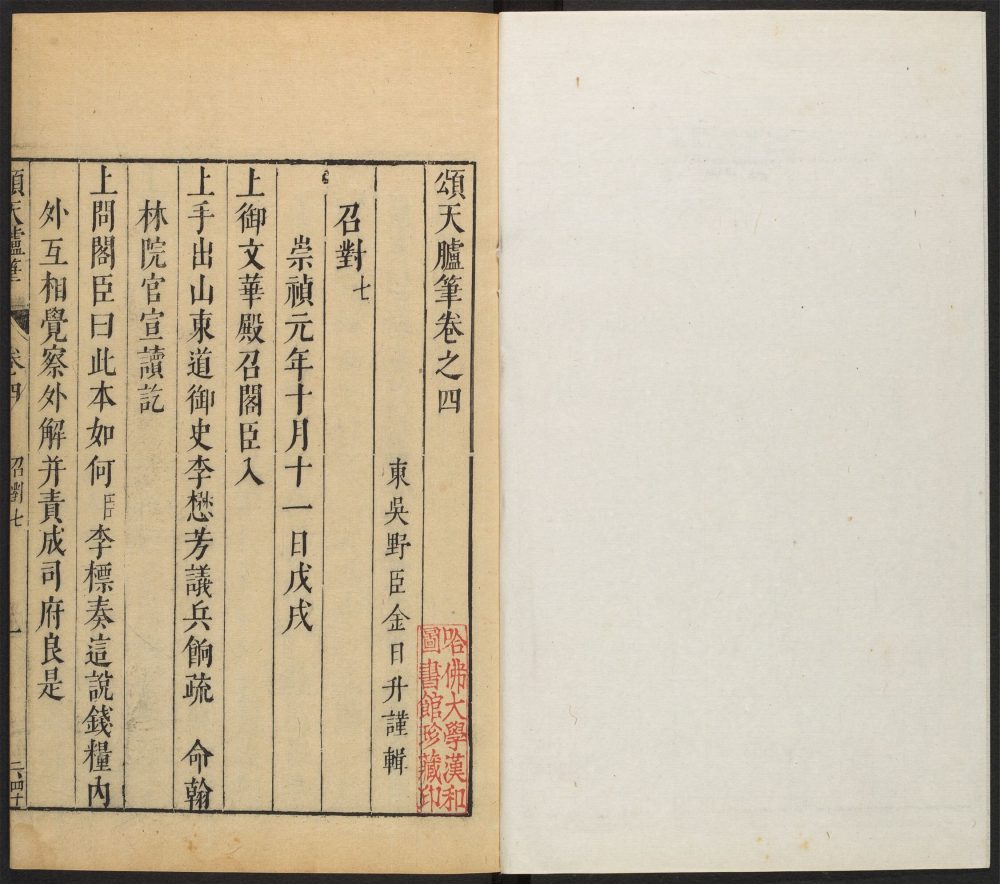 頌天臚筆卷之四
東吳野臣金日升謹輯
召對七
崇禎元年十月十一日戊戌
上御文華殿召閣臣入
上手出山東道御史李懋芳議兵餉疏 命翰
林院官宣讀訖
上問閣臣曰此本如何臣李標奏這說錢糧內
外互相覺察外解并責成司府良是
頌天臚筆 卷四 召對七 一
哈佛大學漢和
圖書館珍藏印